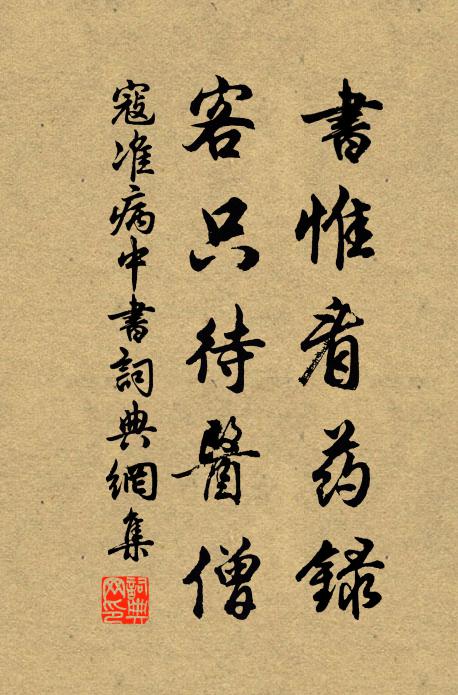 書惟看药録
客只待醫僧
寇准病中書詞典網集
詞典网印